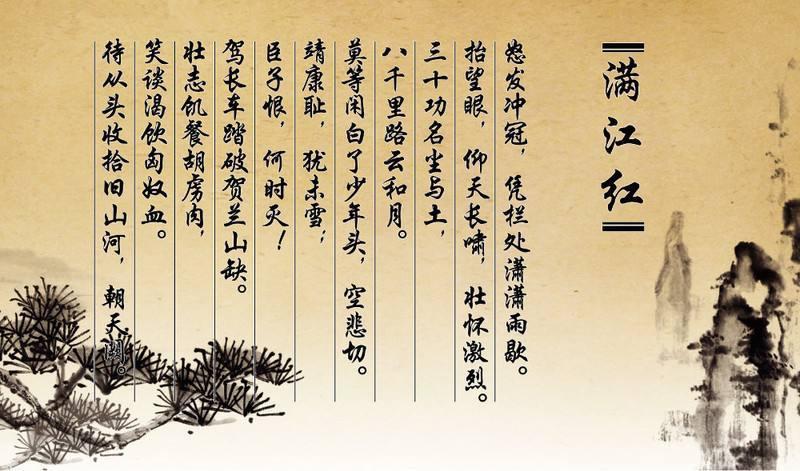 满江红
怒发冲冠，凭栏处潇潇雨歇。
抬望眼，仰天长啸，壮怀激烈。
三十功名尘与土，
八千里路云和月。
莫等闲白了少年头，空悲切。
靖康耻，犹未雪；
臣子恨，何时灭！
驾长车踏破贺兰山缺。
壮志饥餐胡虏肉，
笑谈渴饮匈奴血。
待从头收拾旧山河，朝天阙。